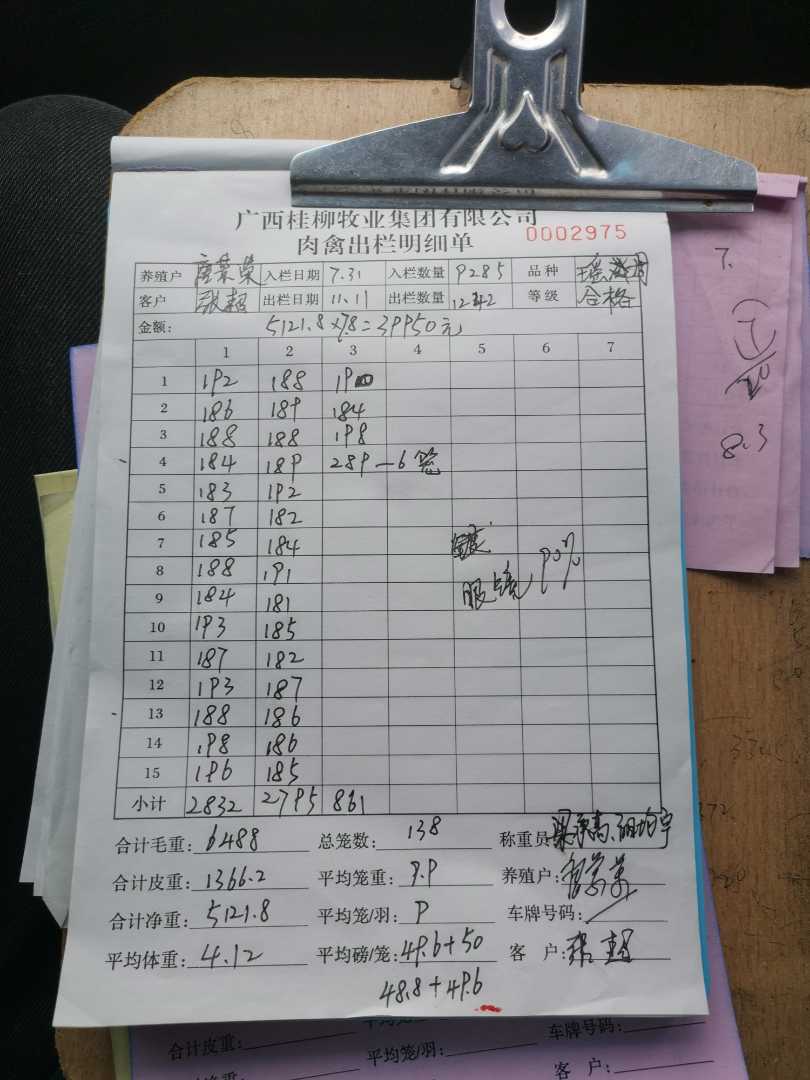 广西桂柳牧业集团有限公司
肉禽出栏明细单 0002975
养殖户 入栏日期 7.31 入栏数量 9285 品种
客户 张超 出栏日期 11.11 出栏数量 1242 等级 合格
金额: 5121.8×7.8=39950元
1 2 3 4 5 6 7
1 192 188 190
2 186 189 184
3 188 188 198
4 184 189 289—6笼
5 183 192
6 187 182
7 185 184
8 188 191
9 184 181
10 193 185
11 187 182
12 193 187
13 188 186
14 198 186
15 196 185
小计 2832 2795 861
眼 90%
合计毛重: 6488 总笼数: 138 称重员:
合计皮重: 1366.2 平均笼重: 9.9 养殖户:
合计净重: 5121.8 平均笼/羽: 9 车牌号码:
平均体重: 4.12 平均磅/笼: 49.6+50 客户: 张超
48.8+49.6
7.
8.3
合计皮重: 平均笼/羽: 车牌号码:
客户: